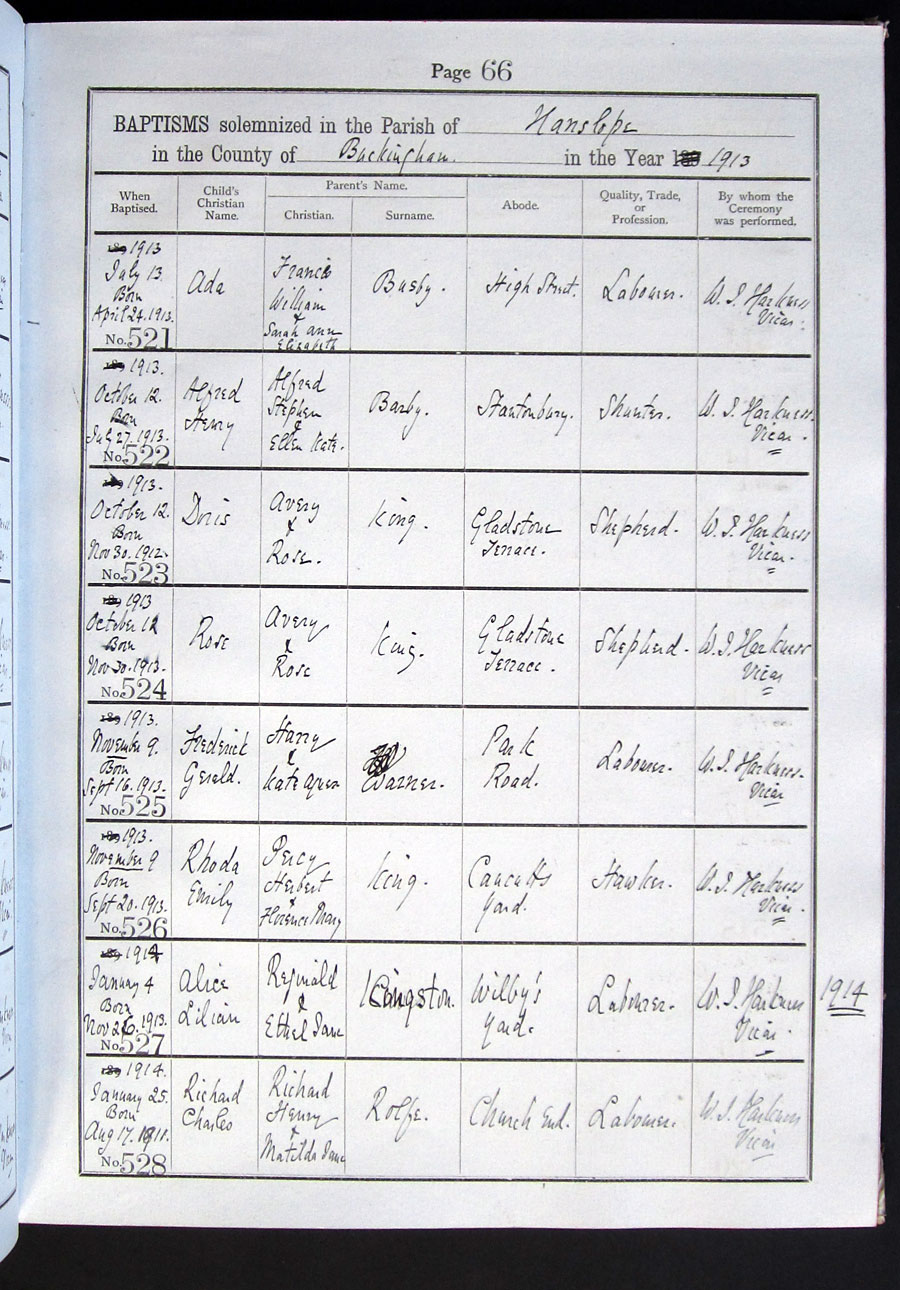 Page 66
BAPTISMS solemnized in the Parish of Hanslope
in the County of Buckingham. in the Year 1913
When Baptised.
Child's Christian Name.
Parent's Name.
Christian.
Surname.
Abode.
Quality, Trade, or Profession.
By whom the Ceremony was performed.
1913
July 13
Born
April 24. 1913.
No. 521
Ada
Francis
William
&
Sarah Ann
Elizabeth
Busby.
High Street.
Labourer.
W. J. Harkness
Vicar.
1913.
October 12.
Born
July 27. 1913.
No. 522
Alfred
Henry
Alfred
Stephen
&
Ellen Kate.
Barby.
Stantonbury.
Shunter.
W. J. Harkness.
Vicar.
1913.
October 12.
Born
Nov 30. 1912.
No. 523
Doris
Avery
&
Rose.
King.
Gladstone
Terrace.
Shepherd.
W. J. Harkness
Vicar.
1913
October 12
Born
Nov 30. 1913.
No. 524
Rose
Avery
&
Rose
King.
Gladstone
Terrace.
Shepherd.
W. J. Harkness
Vicar
1913.
November 9.
Born
Sept 16. 1913.
No. 525
Frederick
Gerald.
Harry
&
Kate
Warner.
Park
Road.
Labourer.
W. J. Harkness.
Vicar
1913.
November 9
Born
Sept 20. 1913.
No. 526
Rhoda
Emily
Percy
Herbert
&
Florence Mary
King.
Yard.
Hawker.
W. J. Harkness
Vicar.
1914
January 4
Born
Nov 26. 1913.
No. 527
Alice
Lilian
Reginald
&
Ethel Jane
Kingston.
Wilby's
Yard.
Labourer.
W. J. Harkness
Vicar.
1914
1914.
January 25.
Born
Aug 17. 1911.
No. 528
Richard
Charles
Richard
Henry
&
Matilda Jane
Rolfe.
Church End.
Labourer.
W. J. Harkness
Vicar